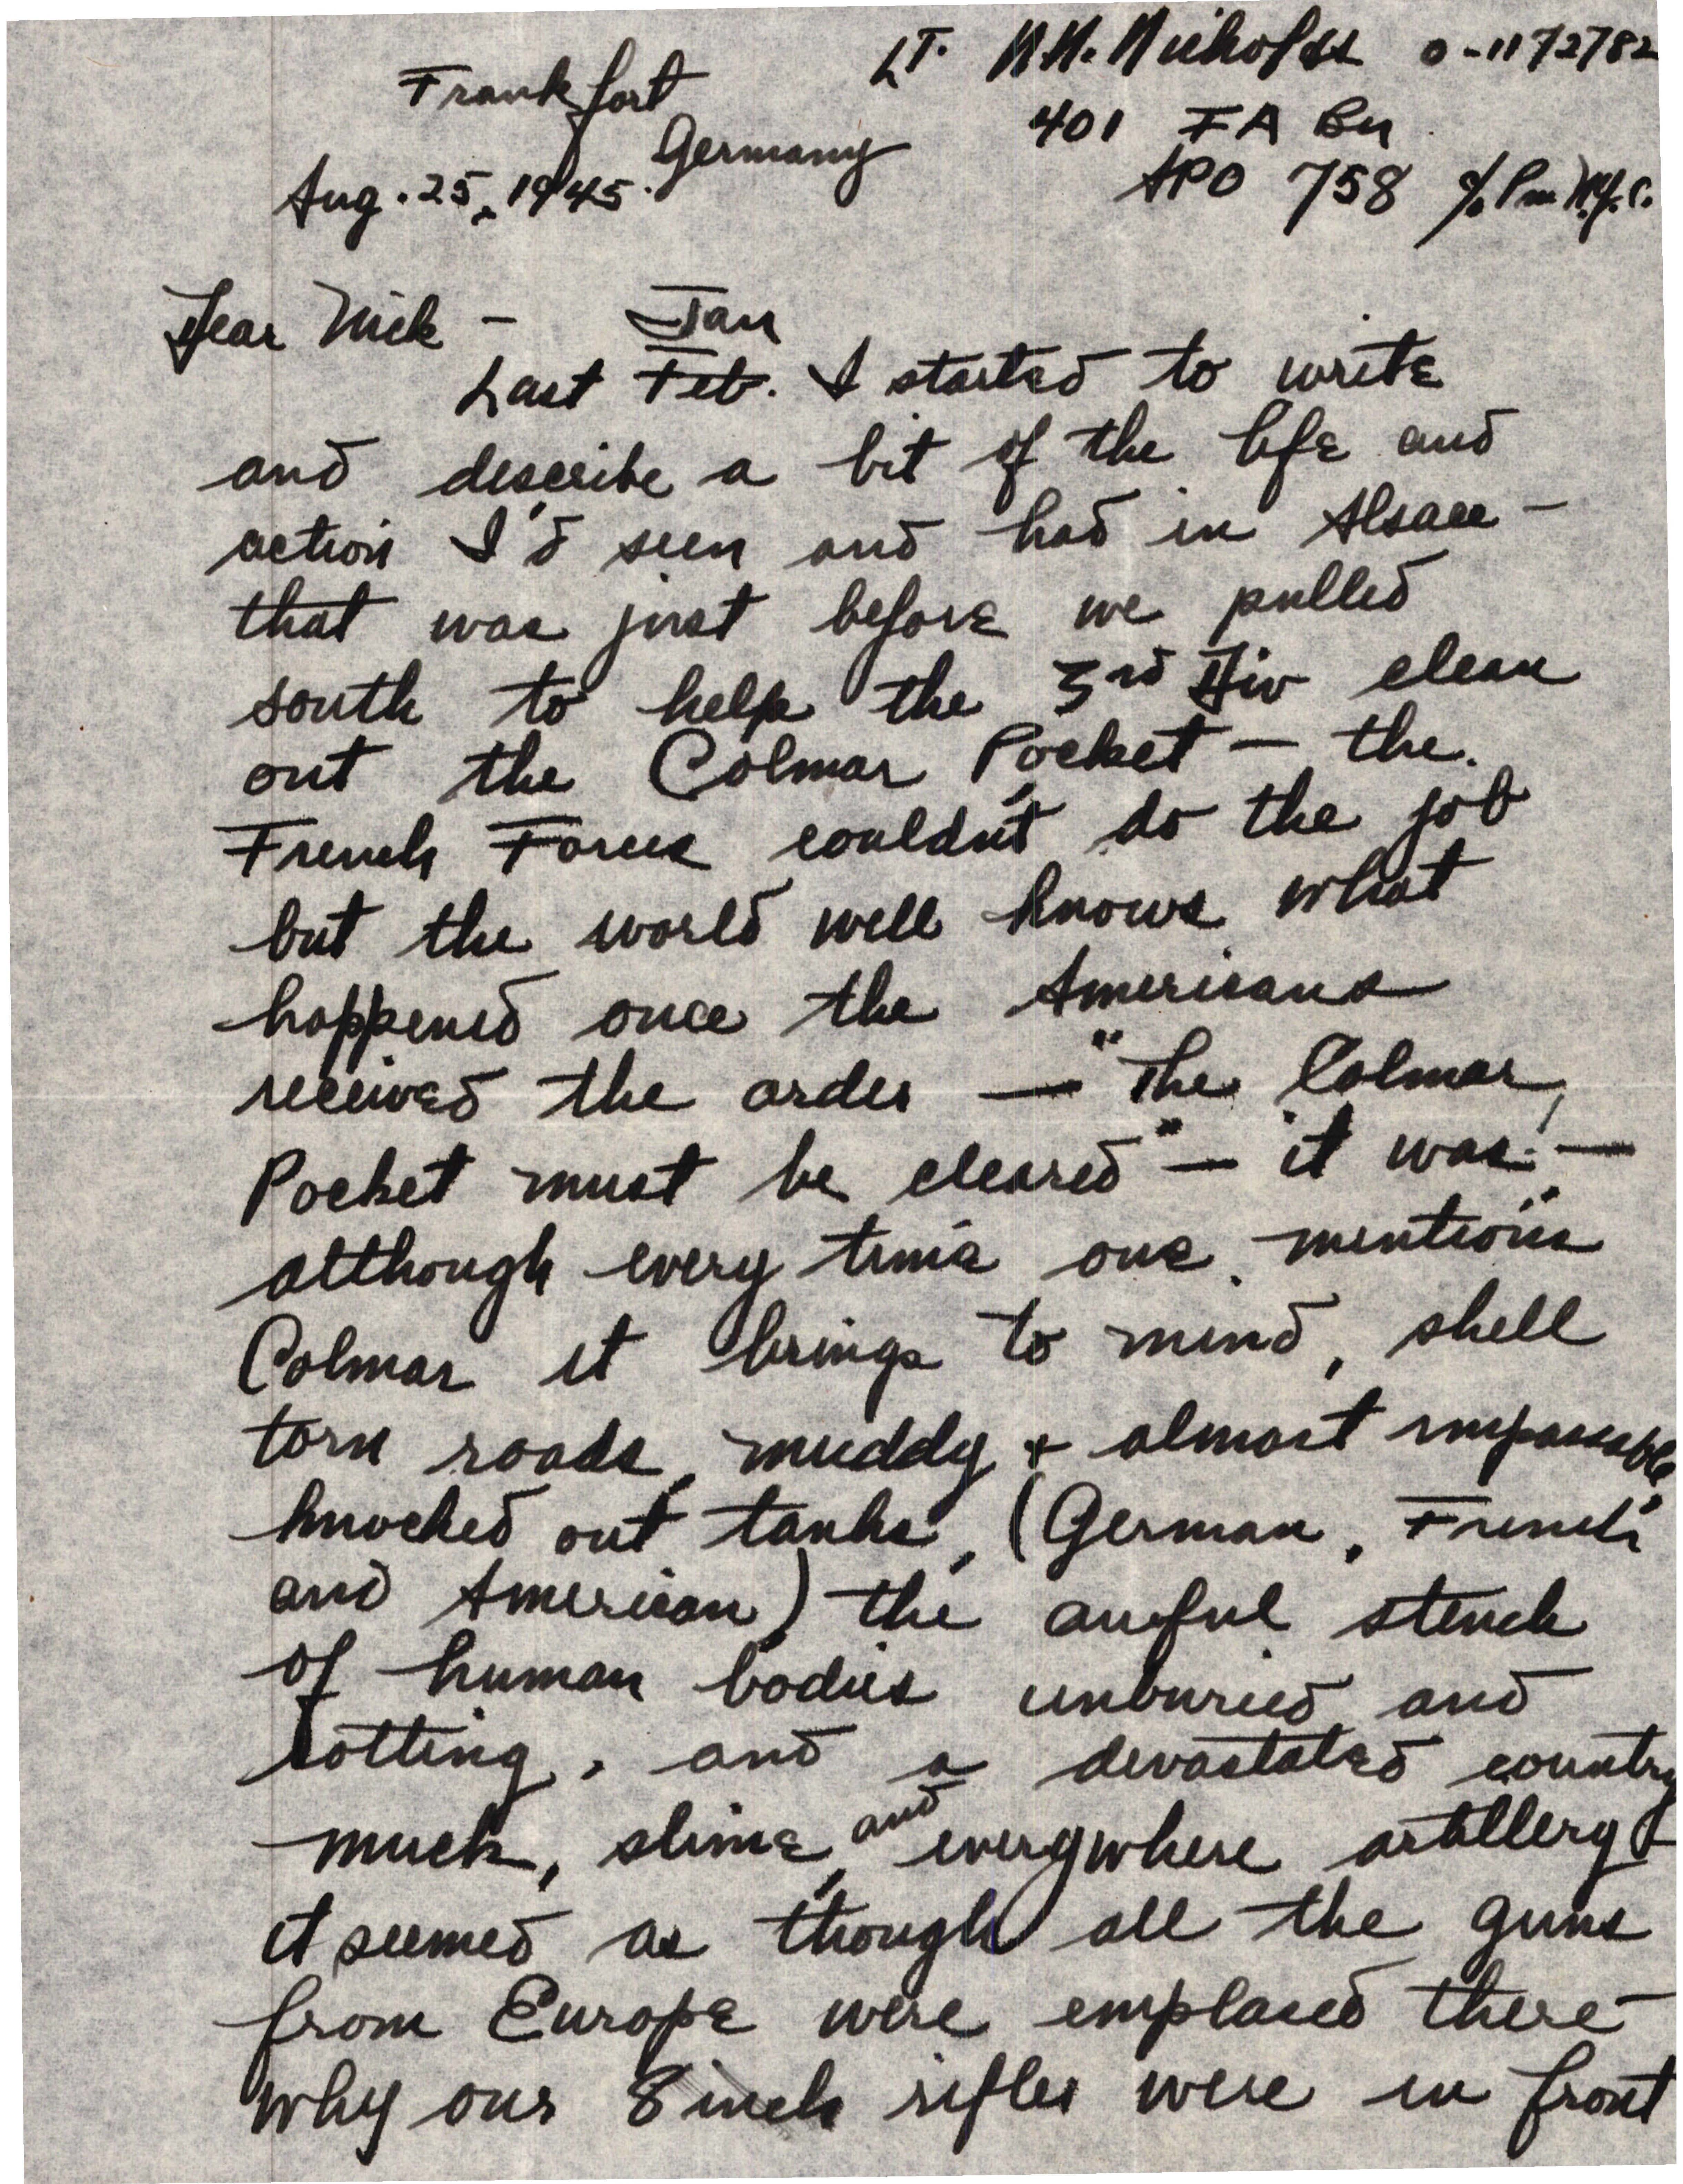 Lt. N.N. Nicholas O-1172782
Frankfort
Germany
401 FA Bn
Aug. 25, 1945.
APO 758 c/o Pm N.Y.C.
Dear Nick -
Jan
Last Feb. I started to write
and describe a bit of the life and
action I'd seen and had in Alsace -
that was just before we pulled
south to help the 3rd Div clean
out the Colmar Pocket - the
French Forces couldn't do the job
but the world well knows what
happened once the Americans
received the order - "The Colmar
Pocket must be cleared" - it was! -
although every time one mentions
Colmar it brings to mind, shell
torn roads, muddy + almost impassable,
knocked out tanks, (German, French
and American) the awful stench
of human bodies unburied and
rotting, and a devastated country
muck, slime, and everywhere artillery -
it seemed as though all the guns
from Europe were emplaced there -
why our 8 inch rifles were in front